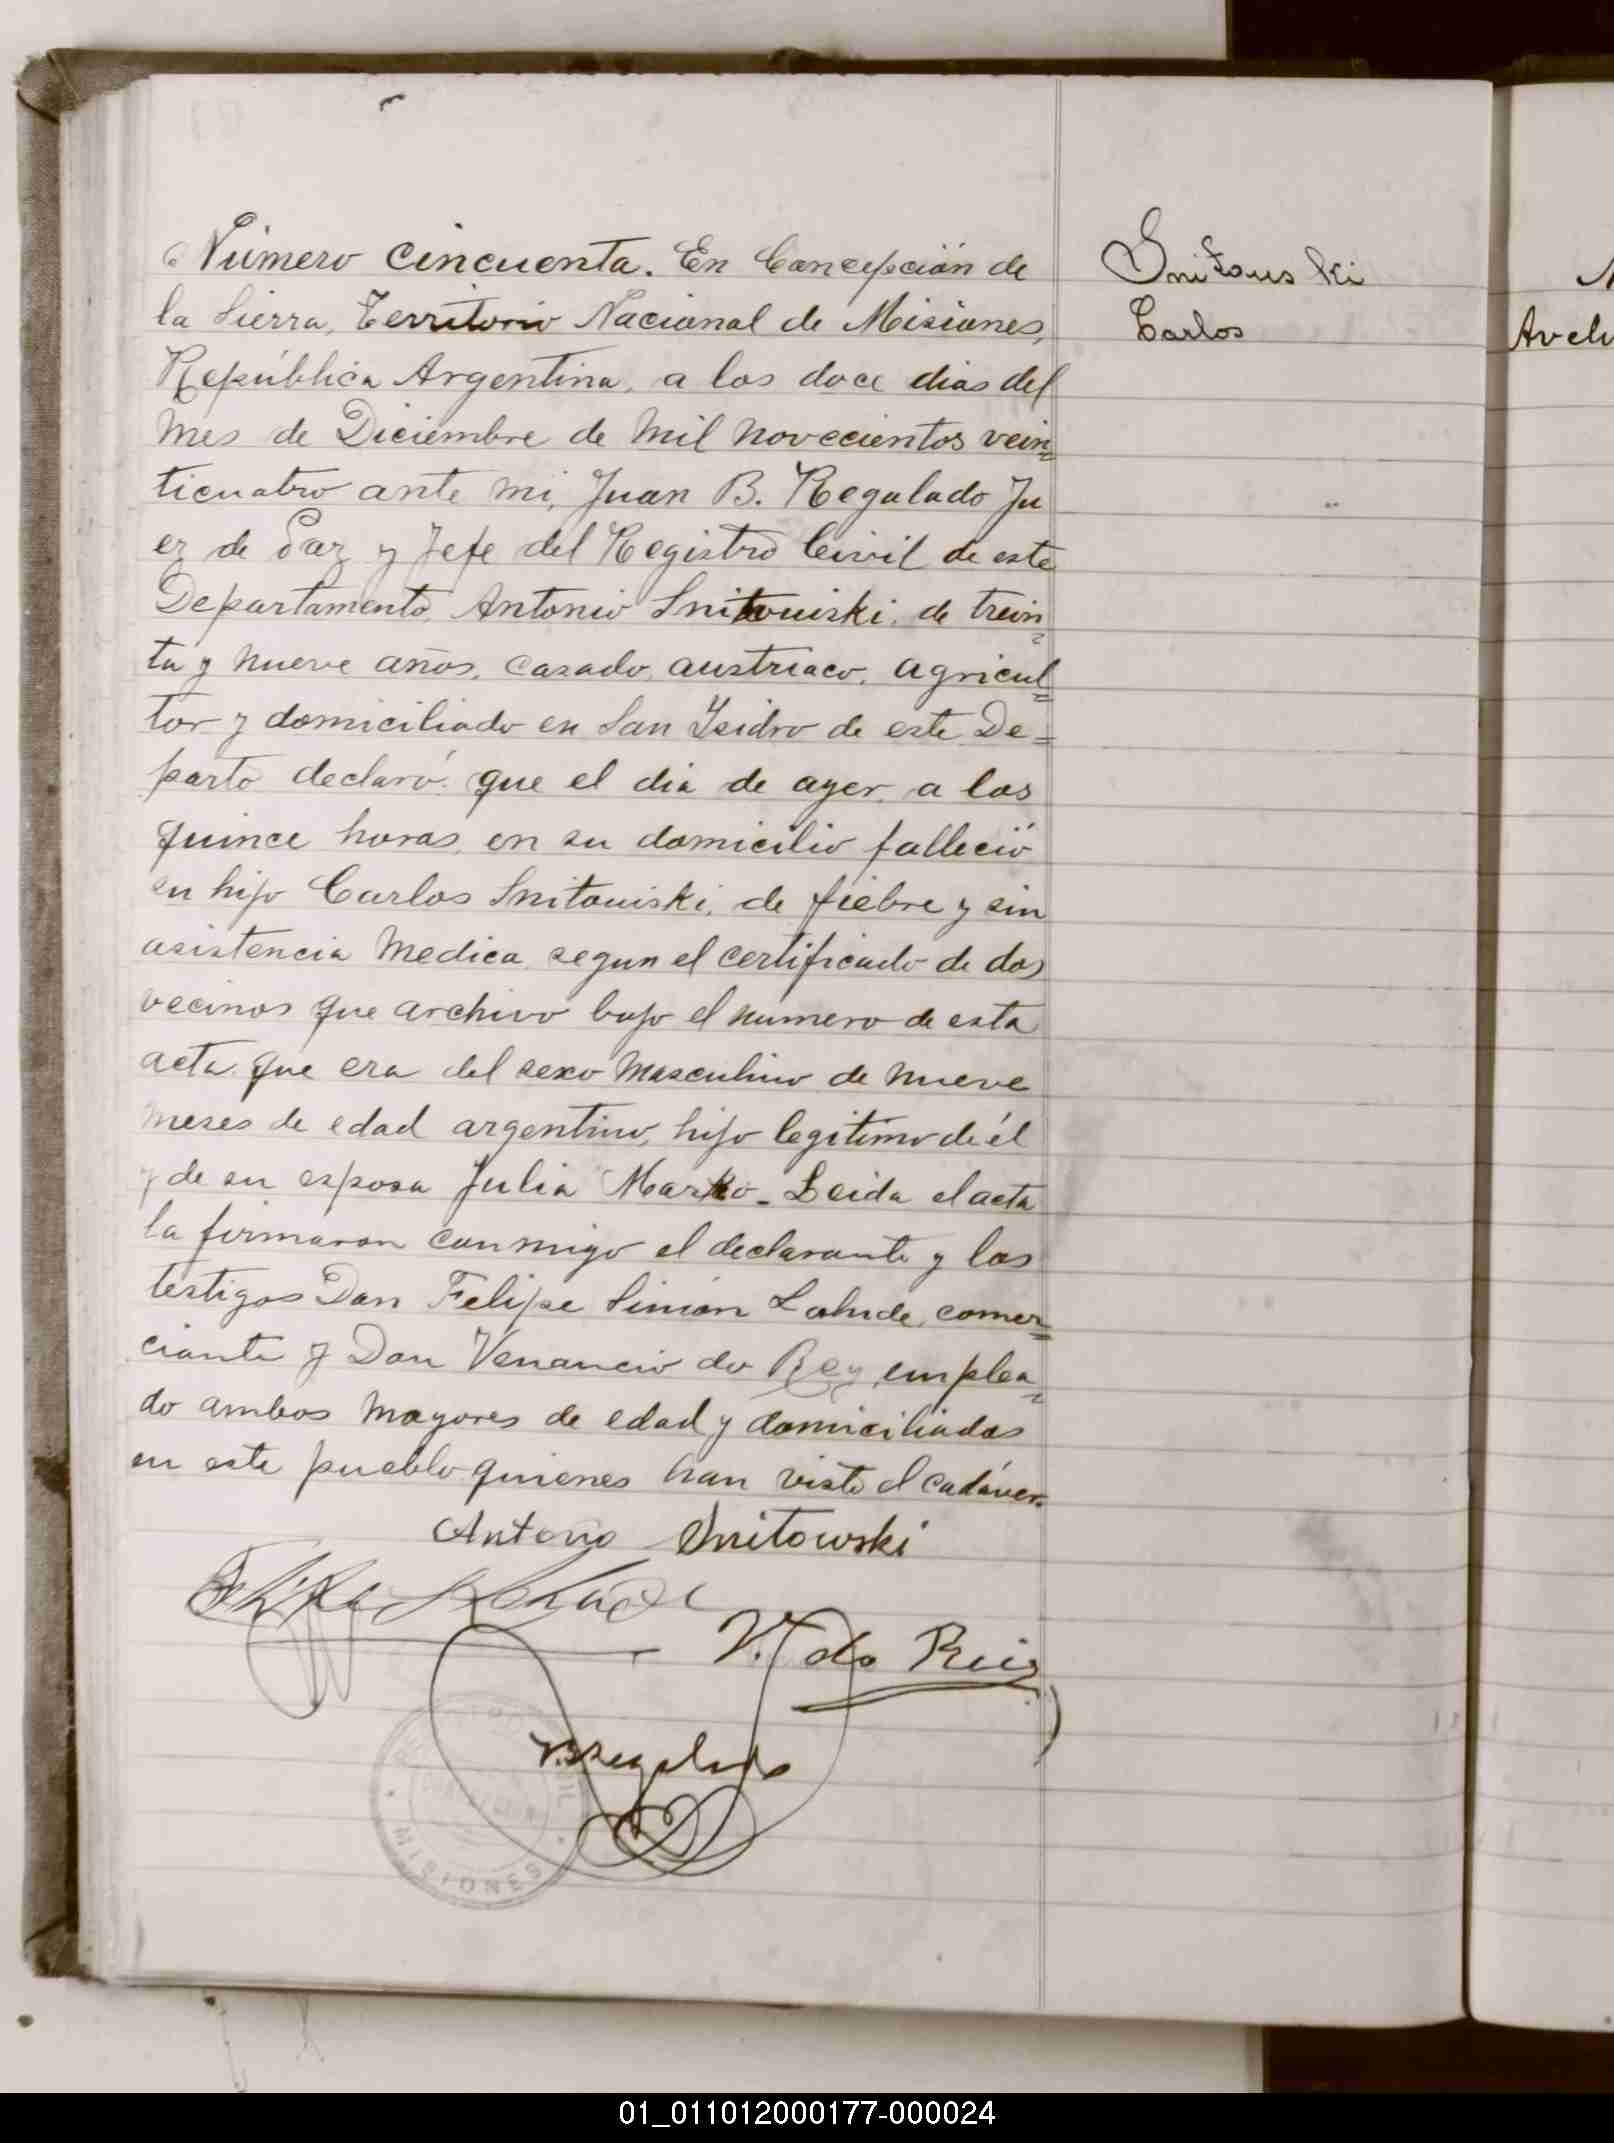 Número cincuenta. En Concepción de
la Sierra, Territorio Nacional de Misiones,
República Argentina, a los doce dias del
mes de Diciembre de mil novecientos vein=
ticuatro ante mi, Juan B. Regalado Ju
ez de Paz y Jefe del Registro Civil de este
Departamento, Antonio Snitouiski, de trein=
ta y nueve años, casado, austriaco, agricul=
tor y domiciliado en San Isidro de este De=
parto declaró: que el dia de ayer, a las
quince horas, en su domicilio falleció
su hijo Carlos Snitouiski, de fiebre y sin
asistencia medica, segun el certificado de dos
vecinos que archivo bajo el numero de esta
acta que era del sexo masculino de nueve
meses de edad argentino, hijo legitimo de él
y de su esposa Julia Marko_ Leida el acta
la firmaron conmigo el declarante y los
testigos Don Felipe Simón Lahude, comer=
ciante y Don Venancio do Rey emplea=
do ambos mayores de edad y domiciliados
en este pueblo quienes han visto el cadáver.
Antonio Snitowski
V. do Reis
Regalado
MISIONES
Snitouski
Carlos
01_011012000177-000024